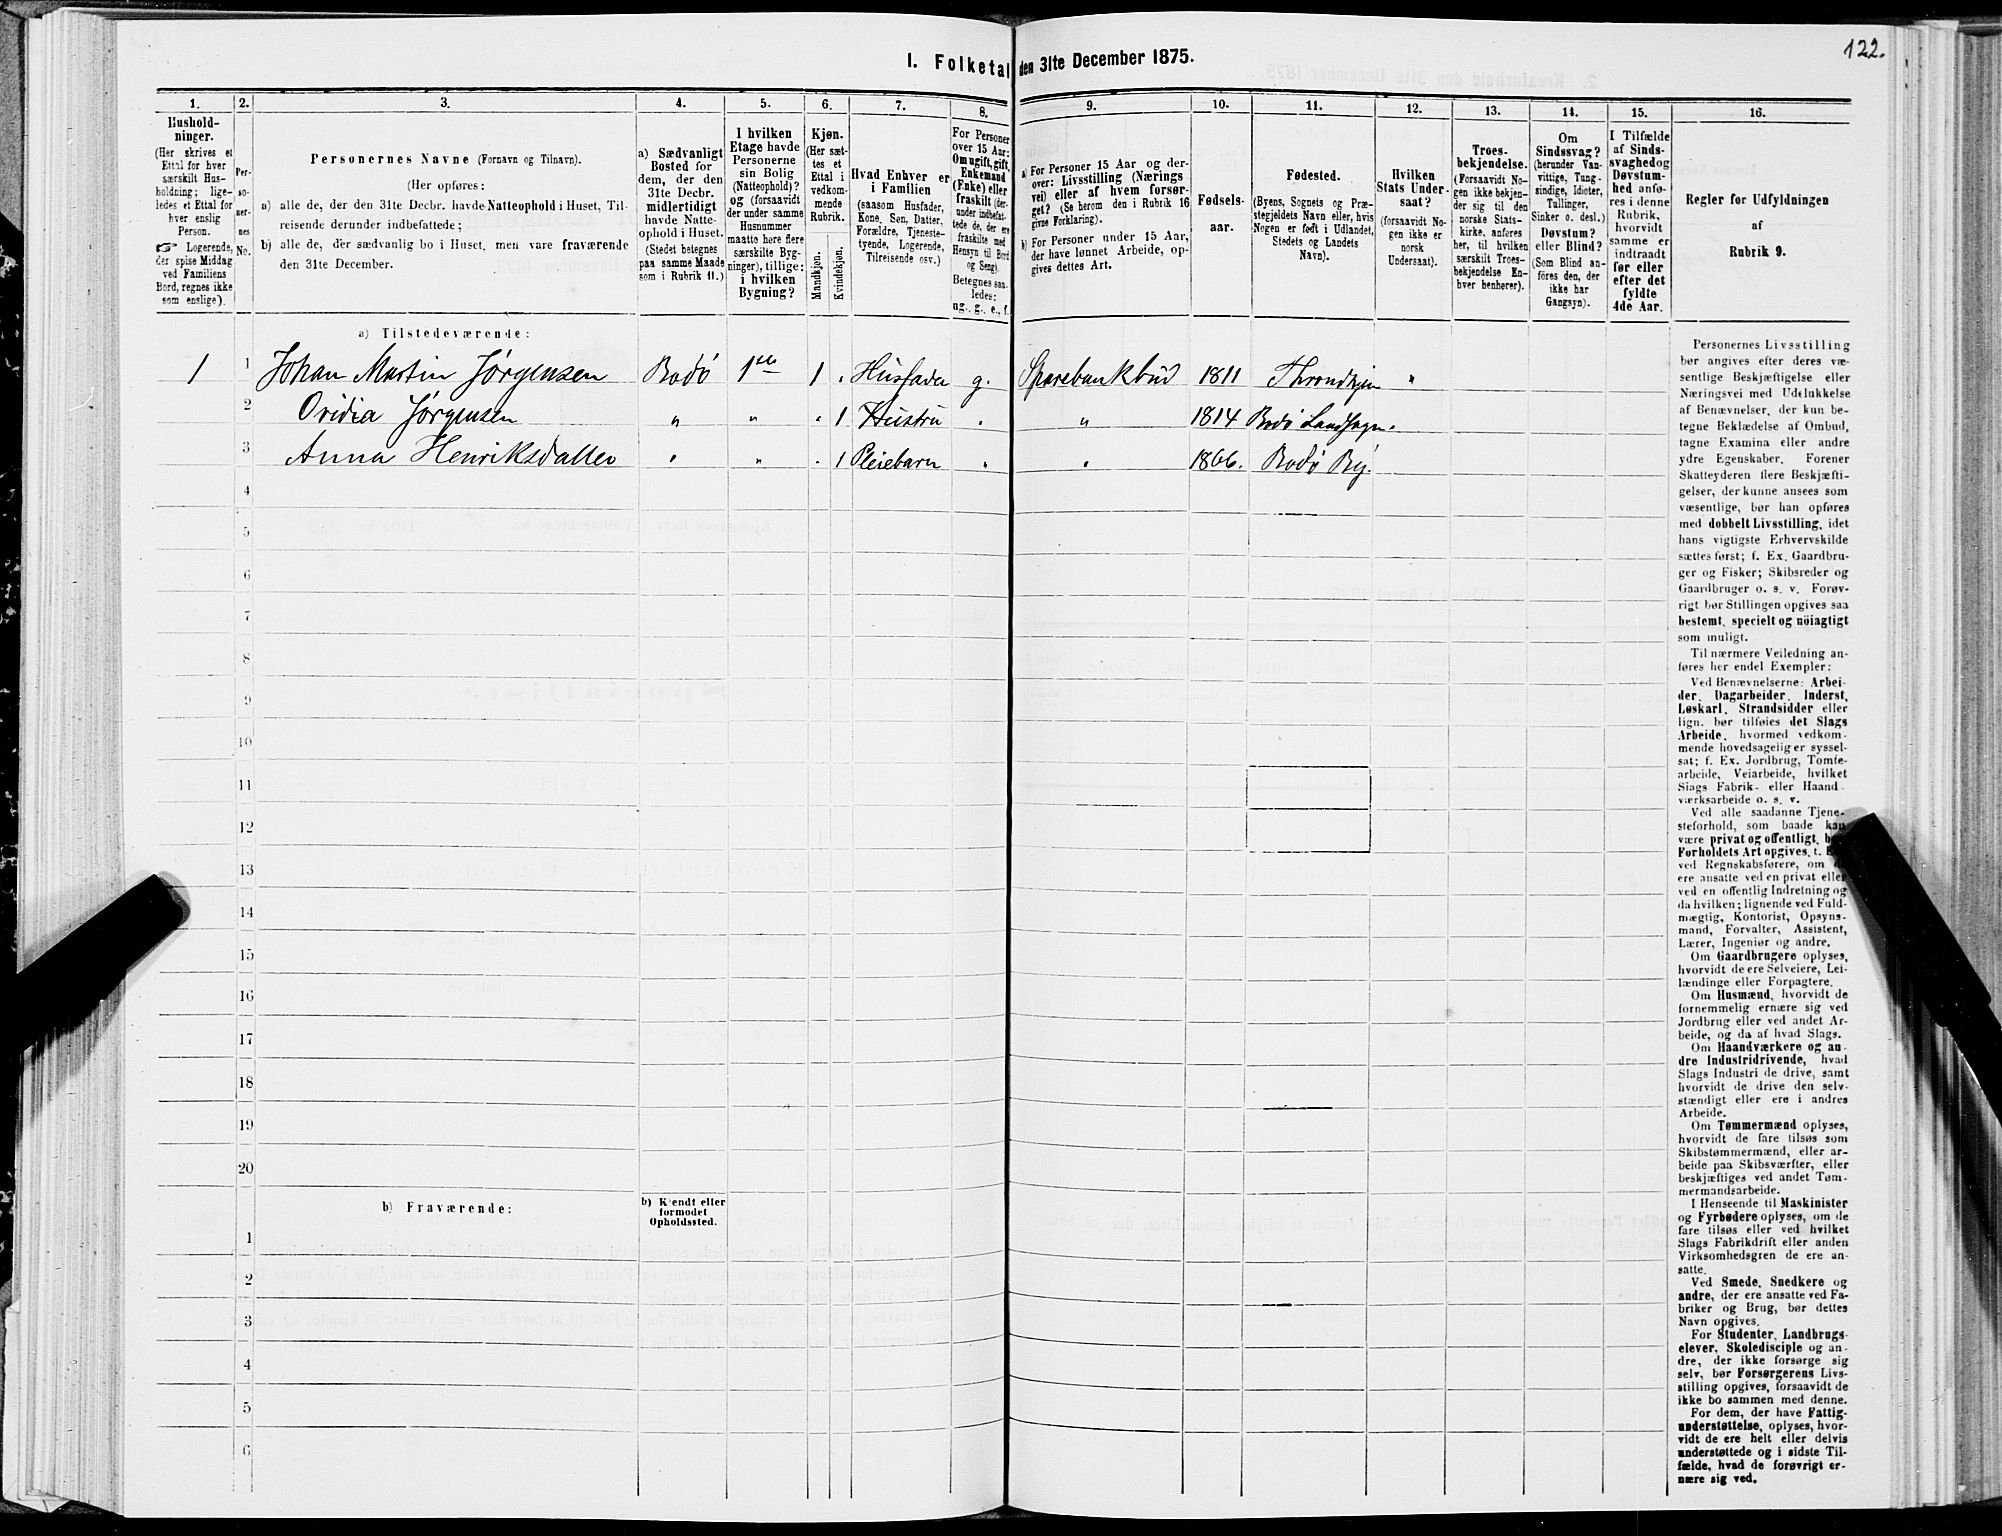 122.
1. Folketal den 31te December 1875.
1.
Husholdninger.
(Her skrives et
Ettal for hver
særskilt Husholdning; ligeledes
et Ettal for
hver enslig
Person.
☞ Logerende,
der spise Middag
ved Familiens
Bord, regnes ikke
som enslige).
2.
Personernes
No.
3.
Personernes Navne (Fornavn og Tilnavn).
(Her opføres:
a) alle de, der den 31te Decbr. havde Natteophold i Huset, Tilreisende
derunder indbefattede;
b) alle de, der sædvanlig bo i Huset, men vare fraværende
den 31te December.
4.
a) Sædvanligt
Bosted for
dem, der den
31te Decbr.
midlertidigt
havde Natteophold
i Huset.
(Stedet betegnes
paa samme Maade
som i Rubrik 11.)
5.
I hvilken
Etage havde
Personerne
sin Bolig
(Natteophold)?
og (forsaavidt
der under samme
Husnummer
maatte høre flere
særskilte Bygninger),
tillige:
i hvilken
Bygning?
6.
Kjøn.
(Her sættes
et
Ettal i
vedkommende
Rubrik.
Mandkjøn.
Kvindekjøn.
7.
Hvad Enhver er
i Familien
(saasom Husfader,
Kone, Søn, Datter,
Forældre, Tjenestetyende,
Logerende,
Tilreisende osv.)
8.
For Personer
over 15 Aar:
Om ugift, gift,
Enkemand
(Enke) eller
fraskilt (derunder
indbefattede
de, der ere
fraskilte med
Hensyn til Bord
og Seng).
Betegnes saaledes:
ug., g., e., f.
9.
a) For Personer 15 Aar og derover:
Livsstilling (Næringsvei)
eller af hvem forsørget?
(Se herom den i Rubrik 16
givne Forklaring).
b) For Personer under 15 Aar,
der have lønnet Arbeide, opgives
dettes Art.
10.
Fødselsaar.
11.
Fødested.
(Byens, Sognets og Præstegjeldets
Navn eller, hvis
Nogen er født i Udlandet,
Stedets og Landets
Navn).
12.
Hvilken
Stats Undersaat?
(forsaavidt Nogen
ikke er
norsk
Undersaat).
13.
Troesbekjendelse.
(Forsaavidt Nogen
ikke bekjender
sig til den
norske Statskirke,
anføres
her, til hvilken
særskilt Troesbekjendelse
Enhver
benhører).
14.
Om
Sindssvag?
(herunder Vanvittige,
Tungsindige,
Idioter,
Tullinger,
Sinker o. desl.)
Døvstum?
eller Blind?
(Som Blind anføres
den, der
ikke har
Gangsyn).
15.
I Tilfælde
af Sindssvaghed
og
Døvstumhed
anføres
i denne
Rubrik,
hvorvidt
samme er
indtraadt
før eller
efter det
fyldte
4de Aar.
16.
Regler for Udfyldningen
af
Rubrik 9.
a) Tilstedeværende:
1 1 Johan Martin Jørgensen Bodø 1ste 1 . Husfader g. Sparebankbud 1811 Throndhjem "
2 Ovidia Jørgensen " " . 1 Hustru . " 1814 Bodø Landsogn.
3 Anna Henriksdatter " " . 1 Pleiebarn " " 1866. Bodø By.
4
5
6
7
8
9
10
11
12
13
14
15
16
17
18
19
20
b) Fraværende:
b) Kjendt eller
formodet
Opholdssted.
1
2
3
4
5
6
Personernes Livsstilling
bør angives efter deres væsentlige
Beskjæftigelse eller
Næringsvei med Udelukkelse
af Benævnelser, der kun betegne
Beklædelse af Ombud,
tagne Examina eller andre
ydre Egenskaber. Forener
Skatteyderen flere Beskjæftigelser,
der kunne ansees som
væsentlige, bør han opføres
med dobbelt Livsstilling, idet
hans vigtigste Erhvervskilde
sættes først; f. Ex. Gaardbruger
og Fisker; Skibsreder og
Gaardbruger o. s. v. Forøvrigt
bør Stillingen opgives saa
bestemt, specielt og nøiagtigt
som muligt.
Til nærmere Veiledning anføres
her endel Exempler:
Ved Benævnelserne: Arbeider,
Dagarbeider, Inderst,
Løskarl, Strandsidder eller
lign. bør tilføies det Slags
Arbeide, hvormed vedkommende
hovedsagelig er sysselsat;
f. Ex. Jordbrug, Tomtearbeide,
Veiarbeide, hvilket
Slags Fabrik- eller Haandværksarbeide
o. s. v.
Ved alle saadanne Tjenesteforhold,
som baade kan
være privat og offentlig, bør
Forholdets Art opgives, t. Ex.
ved Regnskabsførere, om de
ere ansatte ved en privat eller
ved en offentlig Indretning og
da hvilken; lignende ved Fuldmægtig,
Kontorist, Opsynsmand,
Forvalter, Assistent,
Lærer, Ingeniør og andre.
Om Gaardbrugere oplyses,
hvorvidt de ere Selveiere, Leilændinge
eller Forpagtere.
Om Husmænd, hvorvidt de
fornemmelig ernære sig ved
Jordbrug eller ved andet Arbeide,
og da af hvad Slags.
Om Haandværkere og andre
Industridrivende, hvad
Slags Industri de drive, samt
hvorvidt de drive den selvstændigt
eller ere i andres
Arbeide.
Om Tømmermænd oplyses,
hvorvidt de fare tilsøs som
Skibstømmermænd, eller arbeide
paa Skibsværfter, eller
beskjæftiges ved andet Tømmermandsarbeide.
I Henseende til Maskinister
og Fyrbødere oplyses, om de
fare tilsøs eller ved hvilket
Slags Fabrikdrift eller anden
Virksomhedsgren de ere ansatte.
Ved Smede, Snedkere og
andre, der ere ansatte ved Fabriker
og Brug, bør dettes
Navn opgives.
For Studenter, Landbrugselever,
Skoledisciple og andre,
der ikke forsørge sig
selv, bør Forsørgerens Livsstilling
opgives, forsaavidt de
ikke bo sammen med denne.
For dem, der have Fattigunderstøttelse,
oplyses, hvorvidt
de ere helt eller delvis
understøttede og i sidste Tilfælde,
hvad de forøvrigt ernære
sig ved.